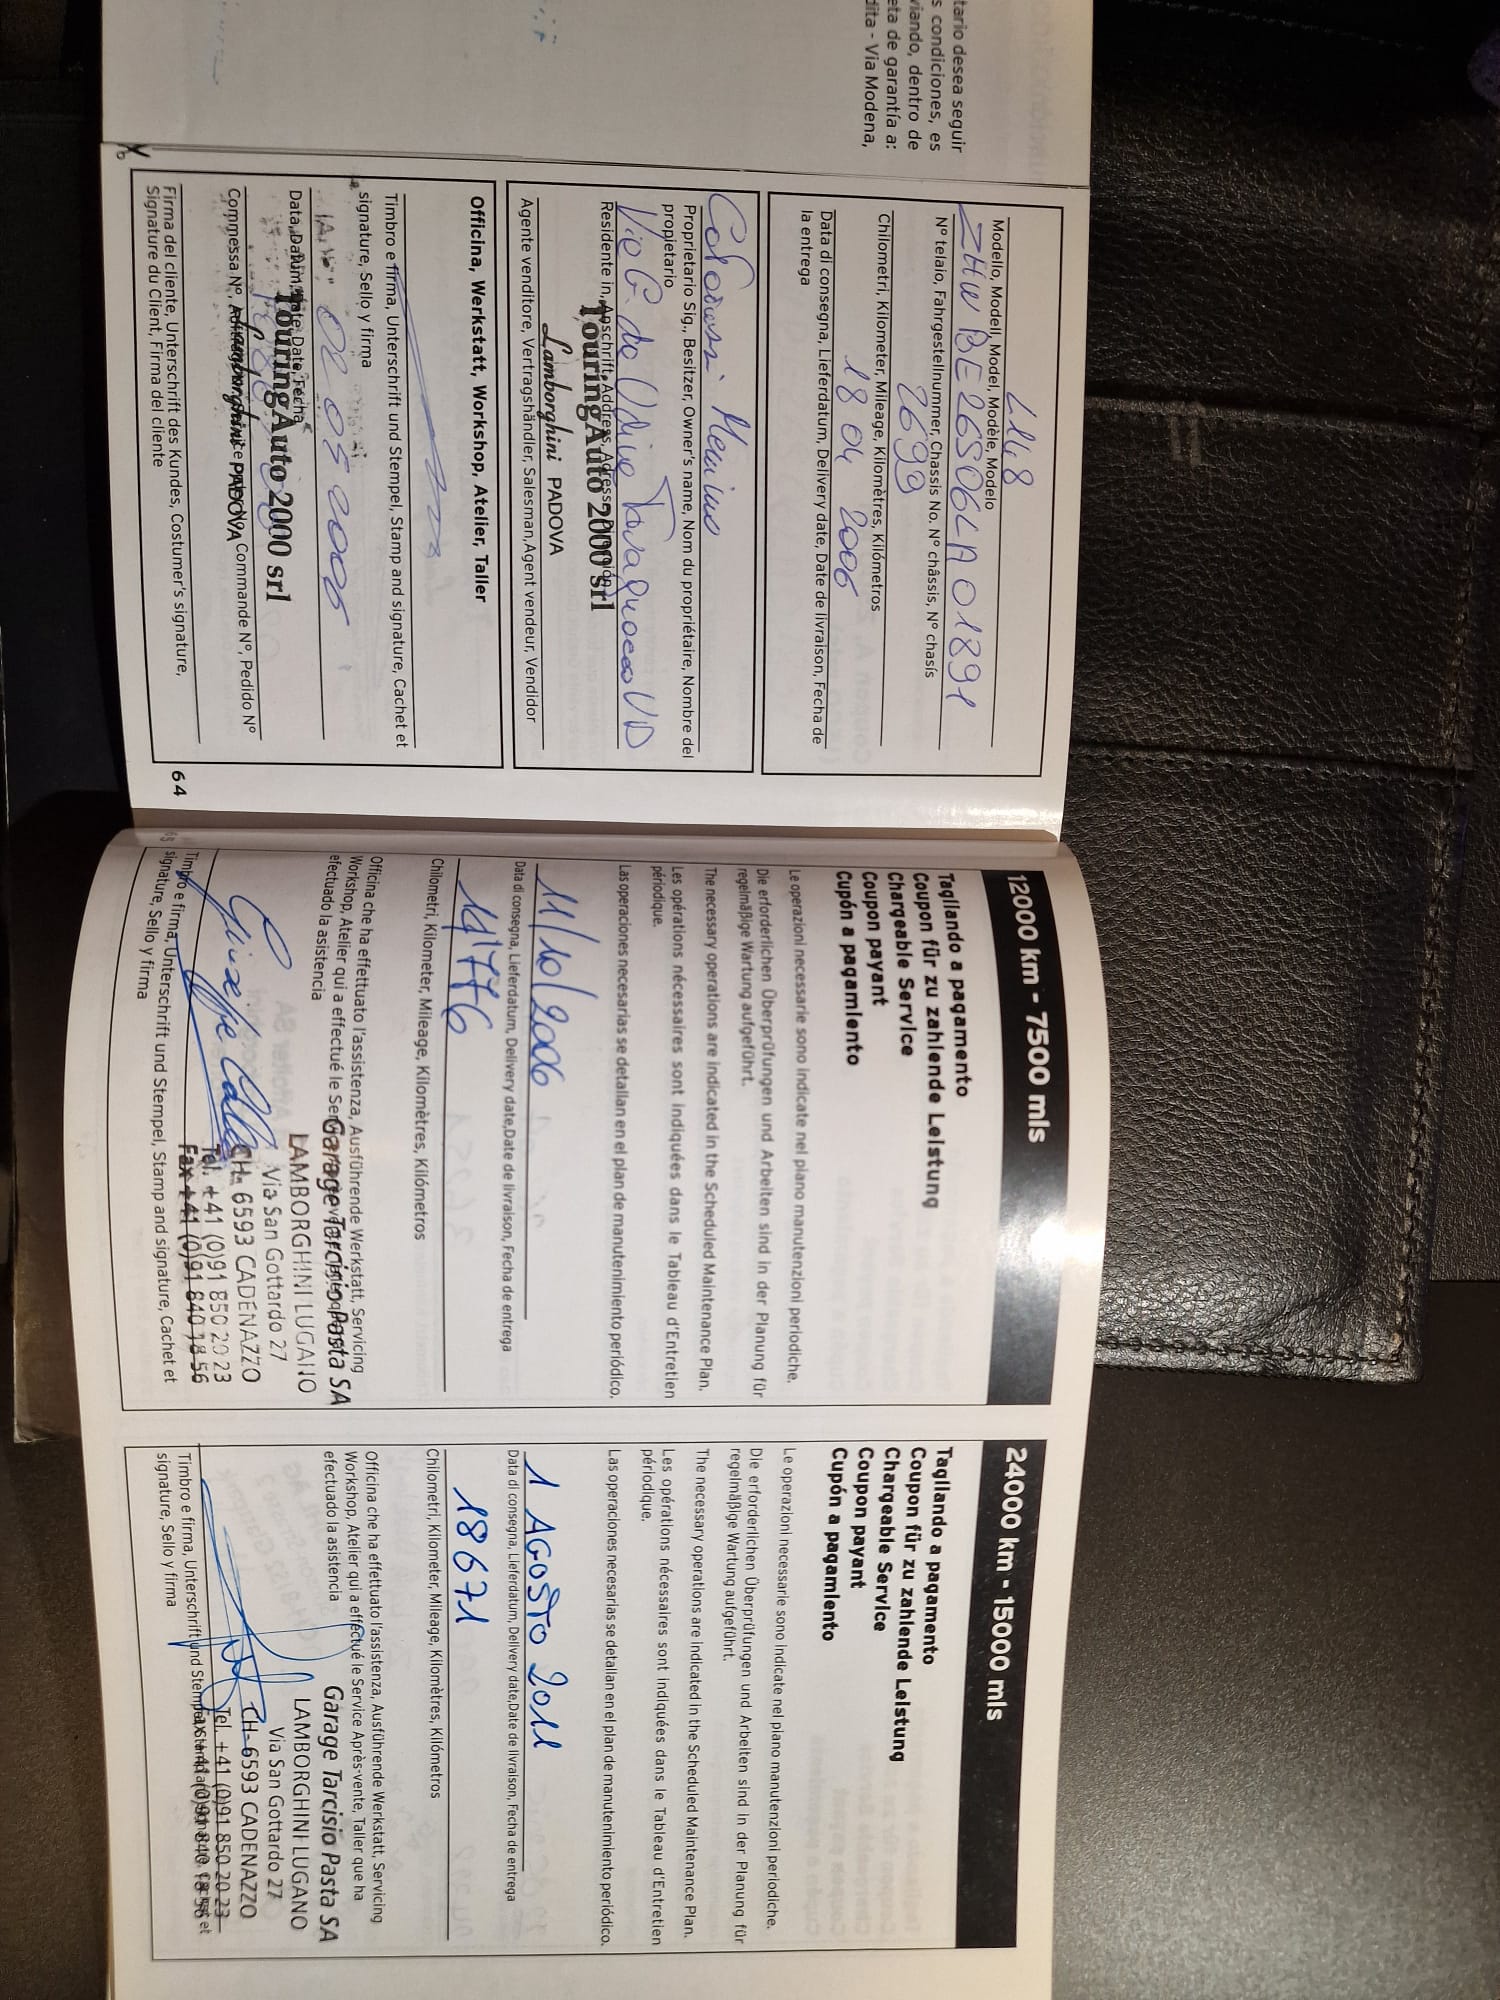 tario desea seguir
s condiciones, es
viando, dentro de
eta de garantía a:
dita - Via Modena,
L148
Modello, Modell, Model, Modèle, Modelo
ZHWBE26S06LA01891
N° telaio, Fahrgestellnummer, Chassis No. N° châssis, N° chasís
2699
Chilometri, Kilometer, Mileage, Kilomètres, Kilómetros
18 04 2006
Data di consegna, Lieferdatum, Delivery date, Date de livraison, Fecha de
la entrega
Proprietario Sig., Besitzer, Owner's name, Nom du propriétaire, Nombre del
propietario
Via G. da Udine Tavagnacco UD
Residente in, Anschrift, Address, Adresse,
TouringAuto 2000 srl
Lamborghini PADOVA
Agente venditore, Vertragshändler, Salesman, Agent vendeur, Vendidor
Officina, Werkstatt, Workshop, Atelier, Taller
Timbro e firma, Unterschrift und Stempel, Stamp and signature, Cachet et
signature, Sello y firma
02 05 2006
Data, Datum, Date, Date, Fecha
TouringAuto 2000 srl
Lamborghini PADOVA
Commessa N°, Commande N°, Pedido N°
Firma del cliente, Unterschrift des Kundes, Costumer's signature,
Signature du Client, Firma del cliente
64
12000 km - 7500 mls
Tagliando a pagamento
Coupon für zu zahlende Leistung
Chargeable Service
Coupon payant
Cupón a pagamiento
Le operazioni necessarie sono indicate nel piano manutenzioni periodiche.
Die erforderlichen Überprüfungen und Arbeiten sind in der Planung für
regelmäßige Wartung aufgeführt.
The necessary operations are indicated in the Scheduled Maintenance Plan.
Les opérations nécessaires sont indiquées dans le Tableau d'Entretien
périodique.
Las operaciones necesarias se detallan en el plan de manutenimiento periódico.
11/10/2006
Data di consegna, Lieferdatum, Delivery date,Date de livraison, Fecha de entrega
14'776
Chilometri, Kilometer, Mileage, Kilomètres, Kilómetros
Officina che ha effettuato l'assistenza, Ausführende Werkstatt, Servicing
Workshop, Atelier qui a effectué le Service
efectuado la asistencia
Garage Tarcisio Pasta SA
LAMBORGHINI LUGANO
Via San Gottardo 27
CH- 6593 CADENAZZO
Tel. +41 (0)91 850 20 23
Fax +41 (0)91 840 18 56
Timbro e firma, Unterschrift und Stempel, Stamp and signature, Cachet et
signature, Sello y firma
65
24000 km - 15000 mls
Tagliando a pagamento
Coupon für zu zahlende Leistung
Chargeable Service
Coupon payant
Cupón a pagamiento
Le operazioni necessarie sono indicate nel piano manutenzioni periodiche.
Die erforderlichen Überprüfungen und Arbeiten sind in der Planung für
regelmäßige Wartung aufgeführt.
The necessary operations are indicated in the Scheduled Maintenance Plan.
Les opérations nécessaires sont indiquées dans le Tableau d'Entretien
périodique.
Las operaciones necesarias se detallan en el plan de manutenimiento periódico.
1 AGOSTO 2011
Data di consegna, Lieferdatum, Delivery date,Date de livraison, Fecha de entrega
18671
Chilometri, Kilometer, Mileage, Kilomètres, Kilómetros
Officina che ha effettuato l'assistenza, Ausführende Werkstatt, Servicing
Workshop, Atelier qui a effectué le Service Après-vente, Taller que ha
efectuado la asistencia
Garage Tarcisio Pasta SA
LAMBORGHINI LUGANO
Via San Gottardo 27
CH- 6593 CADENAZZO
Tel. +41 (0)91 850 20 23
Fax +41 (0)91 840 18 56
Timbro e firma, Unterschrift und Stempel, Stamp and signature, Cachet et
signature, Sello y firma